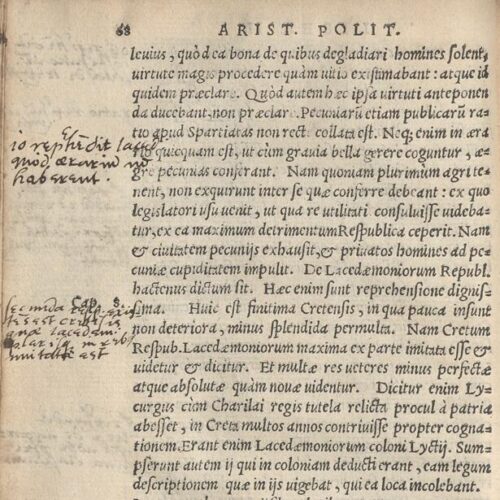 68 ARIST. POLIT.
leuius, quòd ea bona de quibus degladiari homines solent,
uirtute magis procedere quàm uitio existimabant: atque id
quidem præclare. Quòd autem hæc ipsa uirtuti anteponen
da ducebant, non præclare. Pecuniarū etiam publicarū ra-
tio apud Spartiatas non recte collata est. Neq; enim in æra
rio quicquam est, ut cùm grauia bella gerere coguntur, æ-
gre pecunias conferant. Nam quoniam plurimùm agri te-
nent, non exquirunt inter se quæ conferre debeant: ex quo
legislatori usu uenit, ut qua re utilitati consuluisse uideba-
tur, ex ea maximum detrimentum Respublica ceperit. Nam
& ciuitatem pecunijs exhausit, & priuatos homines ad pe-
cuniæ cupiditatem impulit. De Lacedæmoniorum Republ.
hactenus dictum sit. Hæc enim sunt reprehensione dignis-
sima. Huic est finitima Cretensis, in qua pauca insunt
non deteriora, minus splendida permulta. Nam Cretum
Respub. Lacedæmoniorum maxima ex parte imitata esse &
uidetur & dicitur. Et multæ res ueteres minus perfectæ
atque absolutæ quàm nouæ uidentur. Dicitur enim Ly-
curgus cùm Charilai regis tutela relicta procul à patria
abesset, in Creta multos annos contriuisse propter cogna-
tionem. Erant enim Lacedæmoniorum coloni Lyctij. Sum-
pserunt autem ij qui in coloniam deducti erant, eam legum
descriptionem quæ in ijs uigebat, qui ea loca incolebant.
quod ærarium nō
haberent.
Cap. 8.